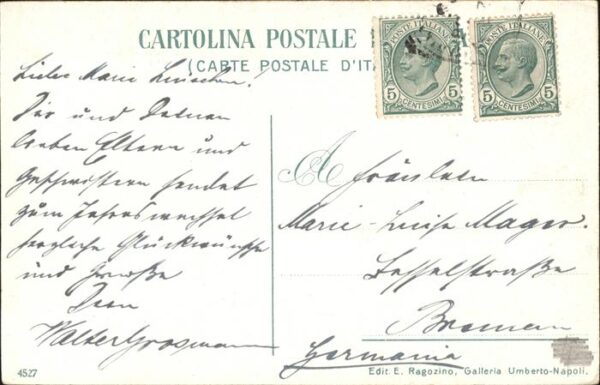 CARTOLINA POSTALE
(CARTE POSTALE D'ITA
POSTE ITALIANE
5 5
CENTESIMI
POSTE ITALIANE
5 5
CENTESIMI
Liebe Marie Luischen!
Dir und Deinen
lieben Eltern und
Geschwistern sendet
zum Jahreswechsel
herzliche Glückwünsche
und Grüße
Dein
Walter Grosmann
A Fräulein
Marie-Luise Mager.
Besselstraße
Bremen
Germania
4527
Edit. E. Ragozino, Galleria Umberto-Napoli.